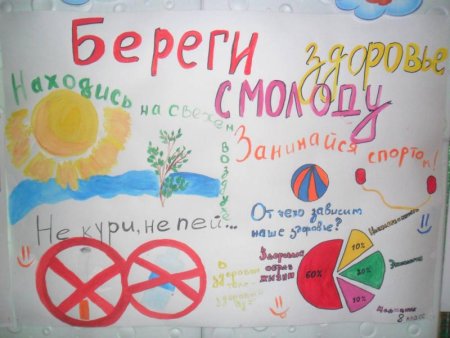 Береги
здоровье
смолоду
Находись на свежем
воздухе
Занимайся спортом!
Не кури, не пей...
От чего зависит
наше здоровье?
Здоровый
образ
жизни
60%
10%
20%
10%
Экология
В
здоровом
теле -
здоровый
дух
8 класс